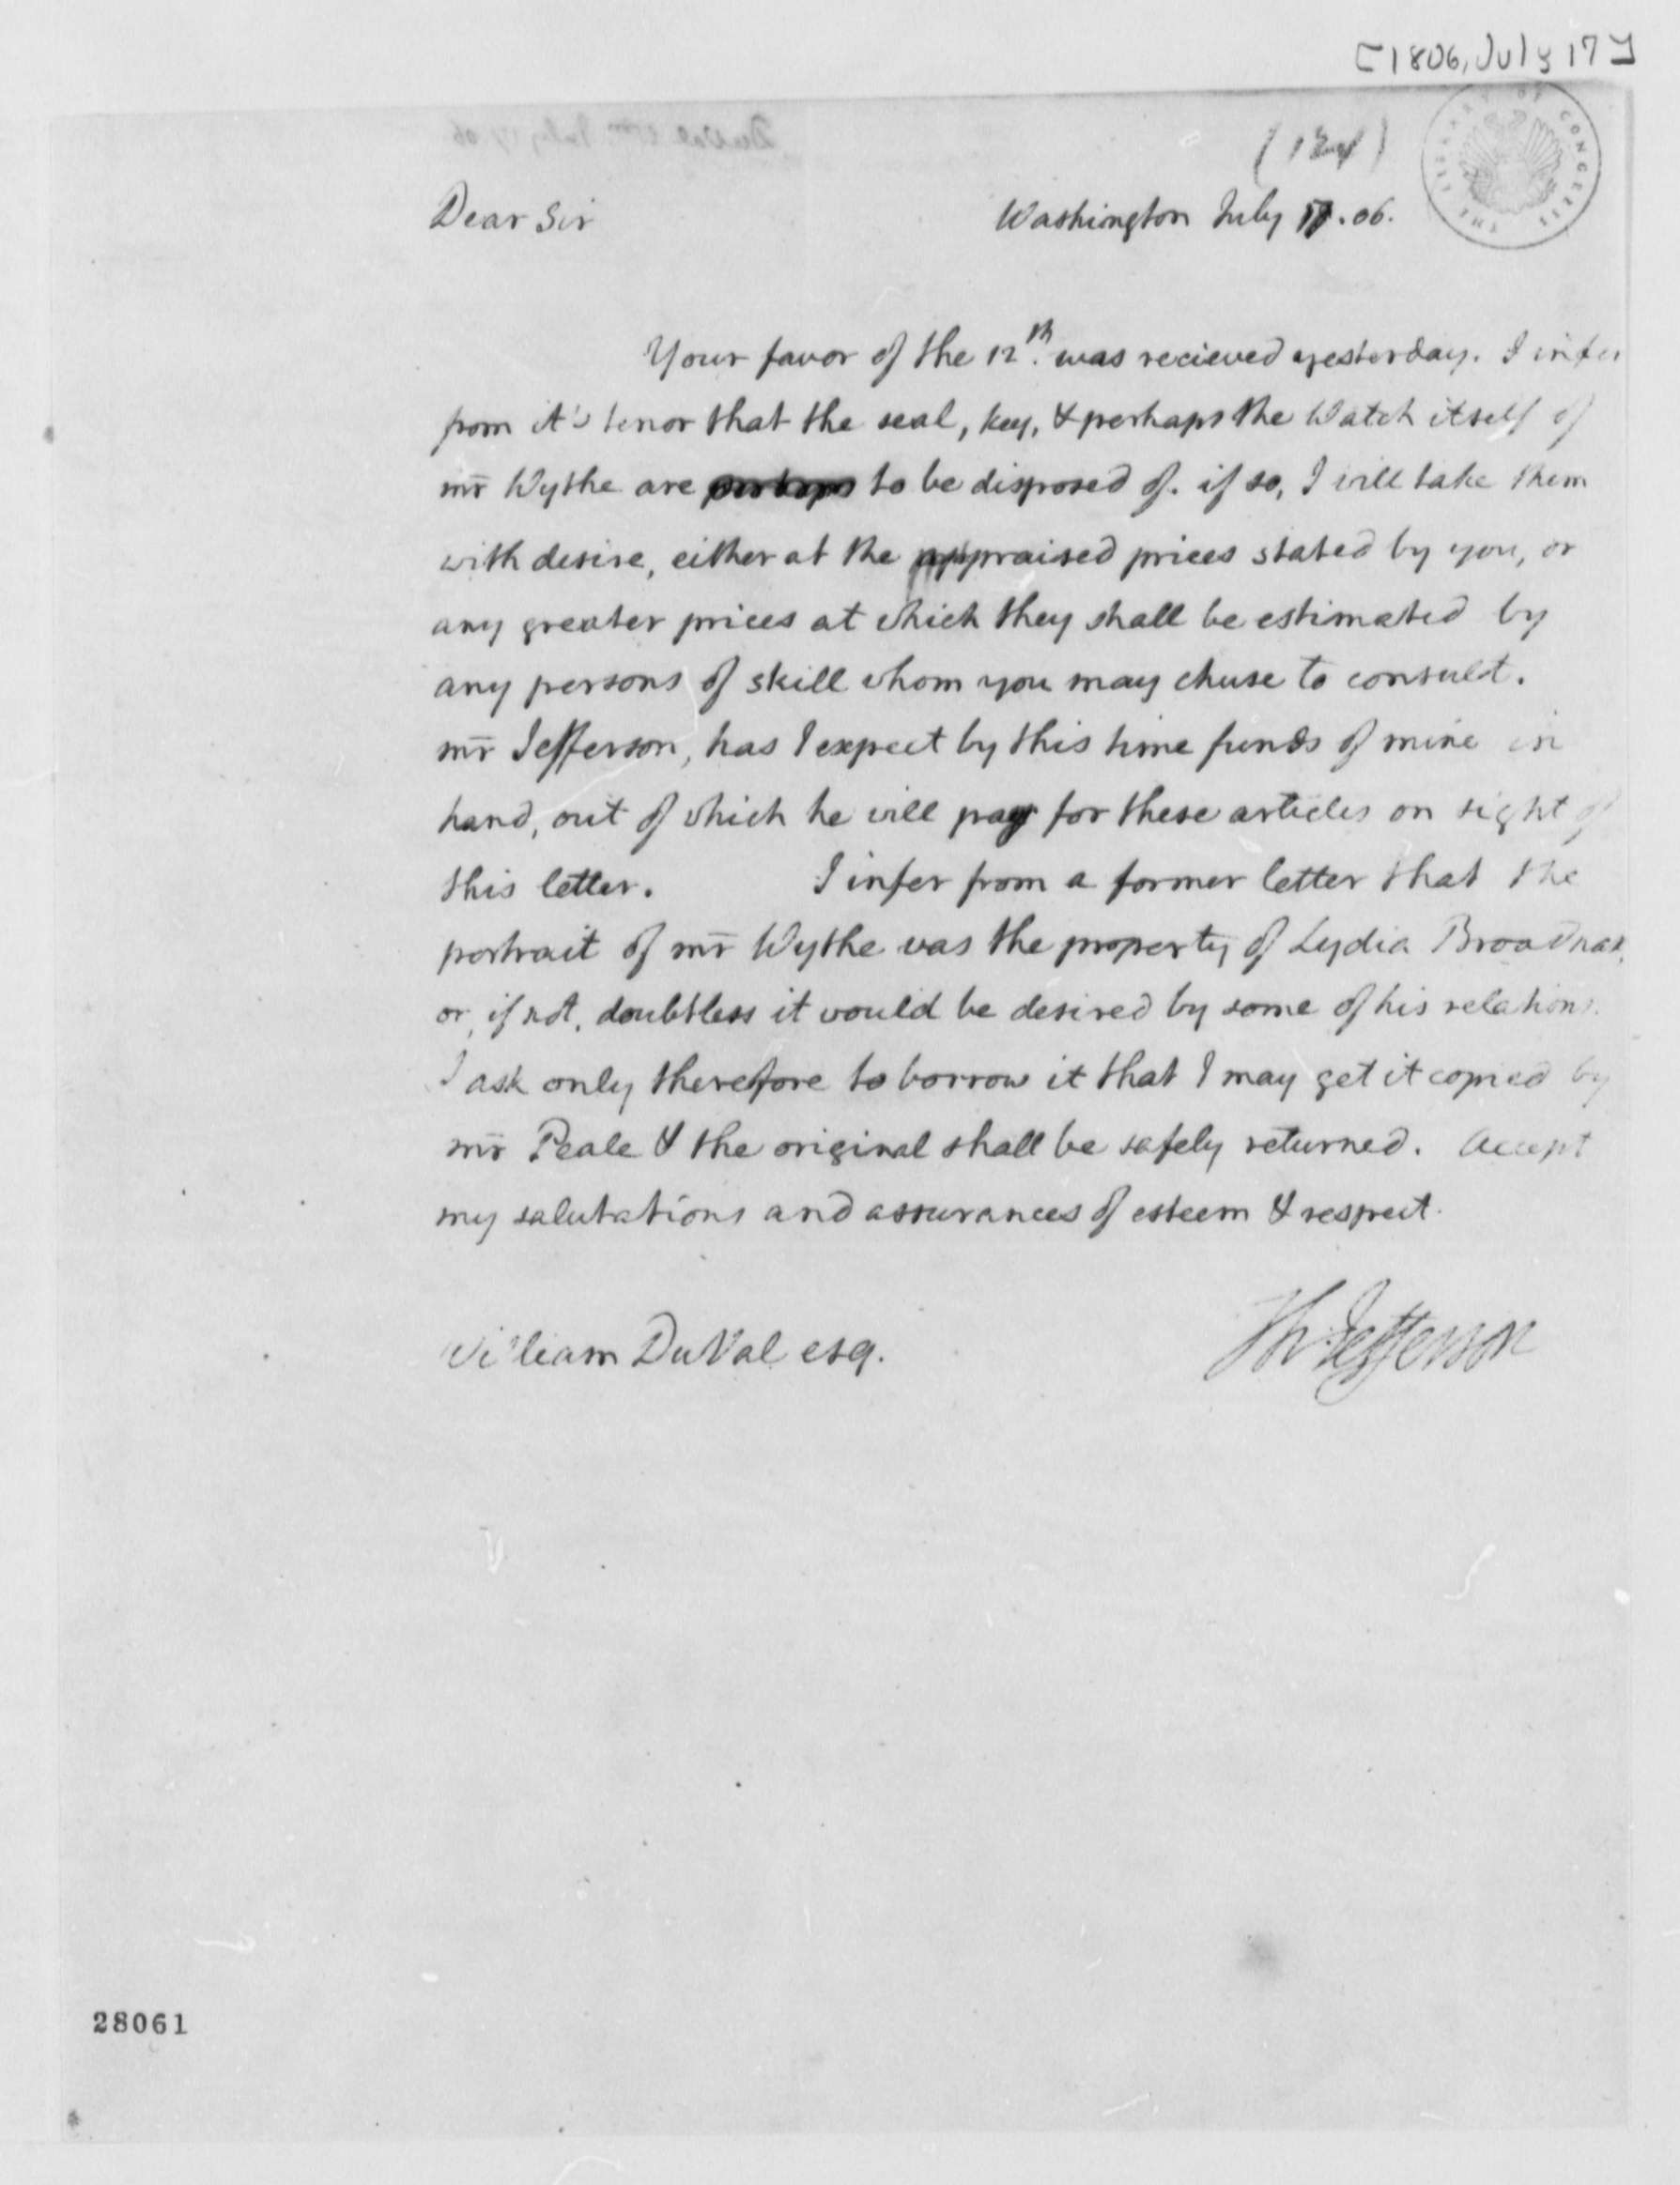 [1806, July 17]
THE LIBRARY OF CONGRESS
Dear Sir
Washington July 17. 06.
Your favor of the 12th. was recieved yesterday. I infer
from it's tenor that the seal, key, & perhaps the Watch itself of
mr Wythe are perhaps to be disposed of. if so, I will take them
with desire, either at the appraised prices stated by you, or
any greater prices at which they shall be estimated by
any persons of skill whom you may chuse to consult.
mr Jefferson, has I expect by this time funds of mine in
hand, out of which he will pay for these articles on sight of
this letter. I infer from a former letter that the
portrait of mr Wythe was the property of Lydia Broadnax,
or, if not, doubtless it would be desired by some of his relations.
I ask only therefore to borrow it that I may get it copied by
mr Peale & the original shall be safely returned. Accept
my salutations and assurances of esteem & respect.
Th Jefferson
William DuVal esq.
28061